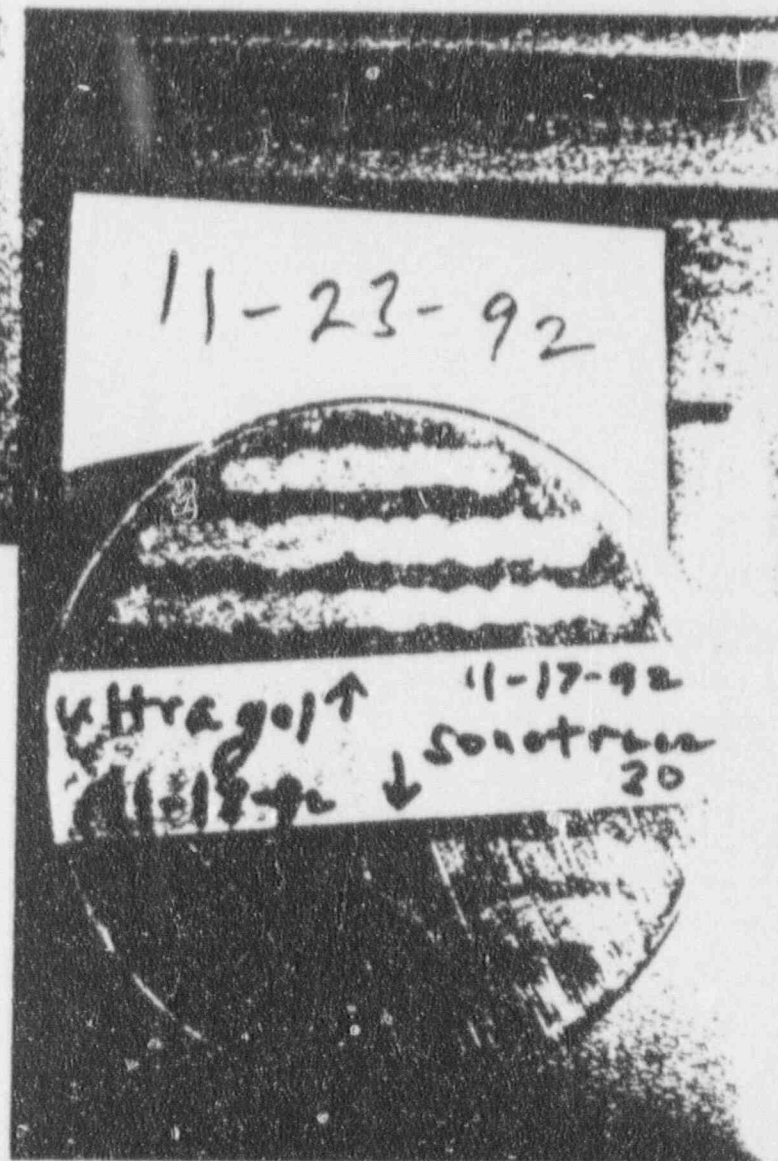 11-23-92
ultragel ↑ 11-17-92
↓ sonotrace
20